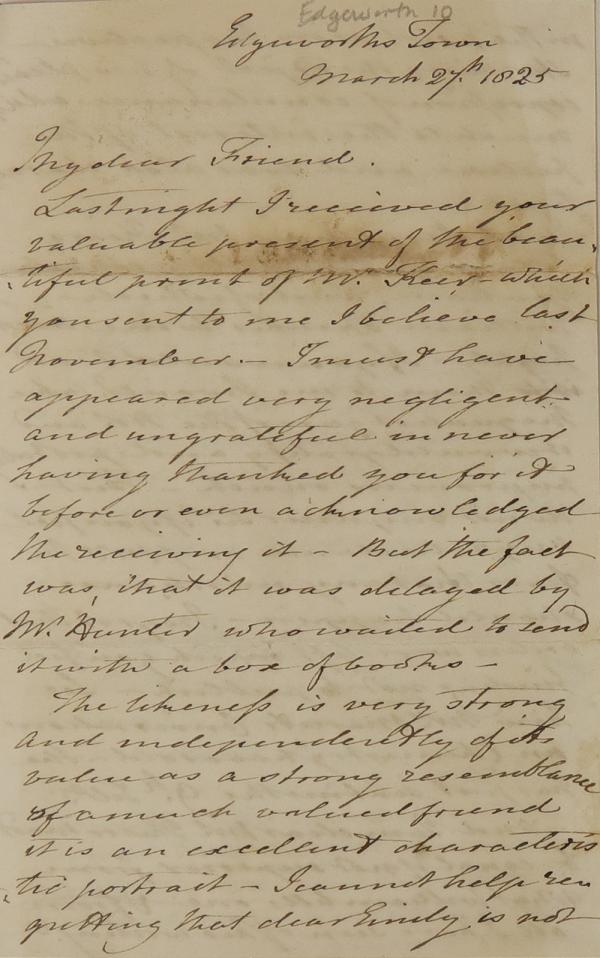 Edgeworth 10
Edgeworths Town
March 27th. 1825
My dear Friend.
Last night I received your
valuable present of the beau-
-tiful print of Mr. Keir - which
you sent to me I believe last
November. - I must have
appeared very negligent
and ungrateful in never
having thanked you for it
before or even acknowledged
the receiving it - But the fact
was, that it was delayed by
Mr. Hunter who waited to send
it with a box of books -
The likeness is very strong
and independently of its
value as a strong resemblance
of a much valued friend
it is an excellent characteris
-tic portrait - I cannot help re
gretting that dear Emily is not